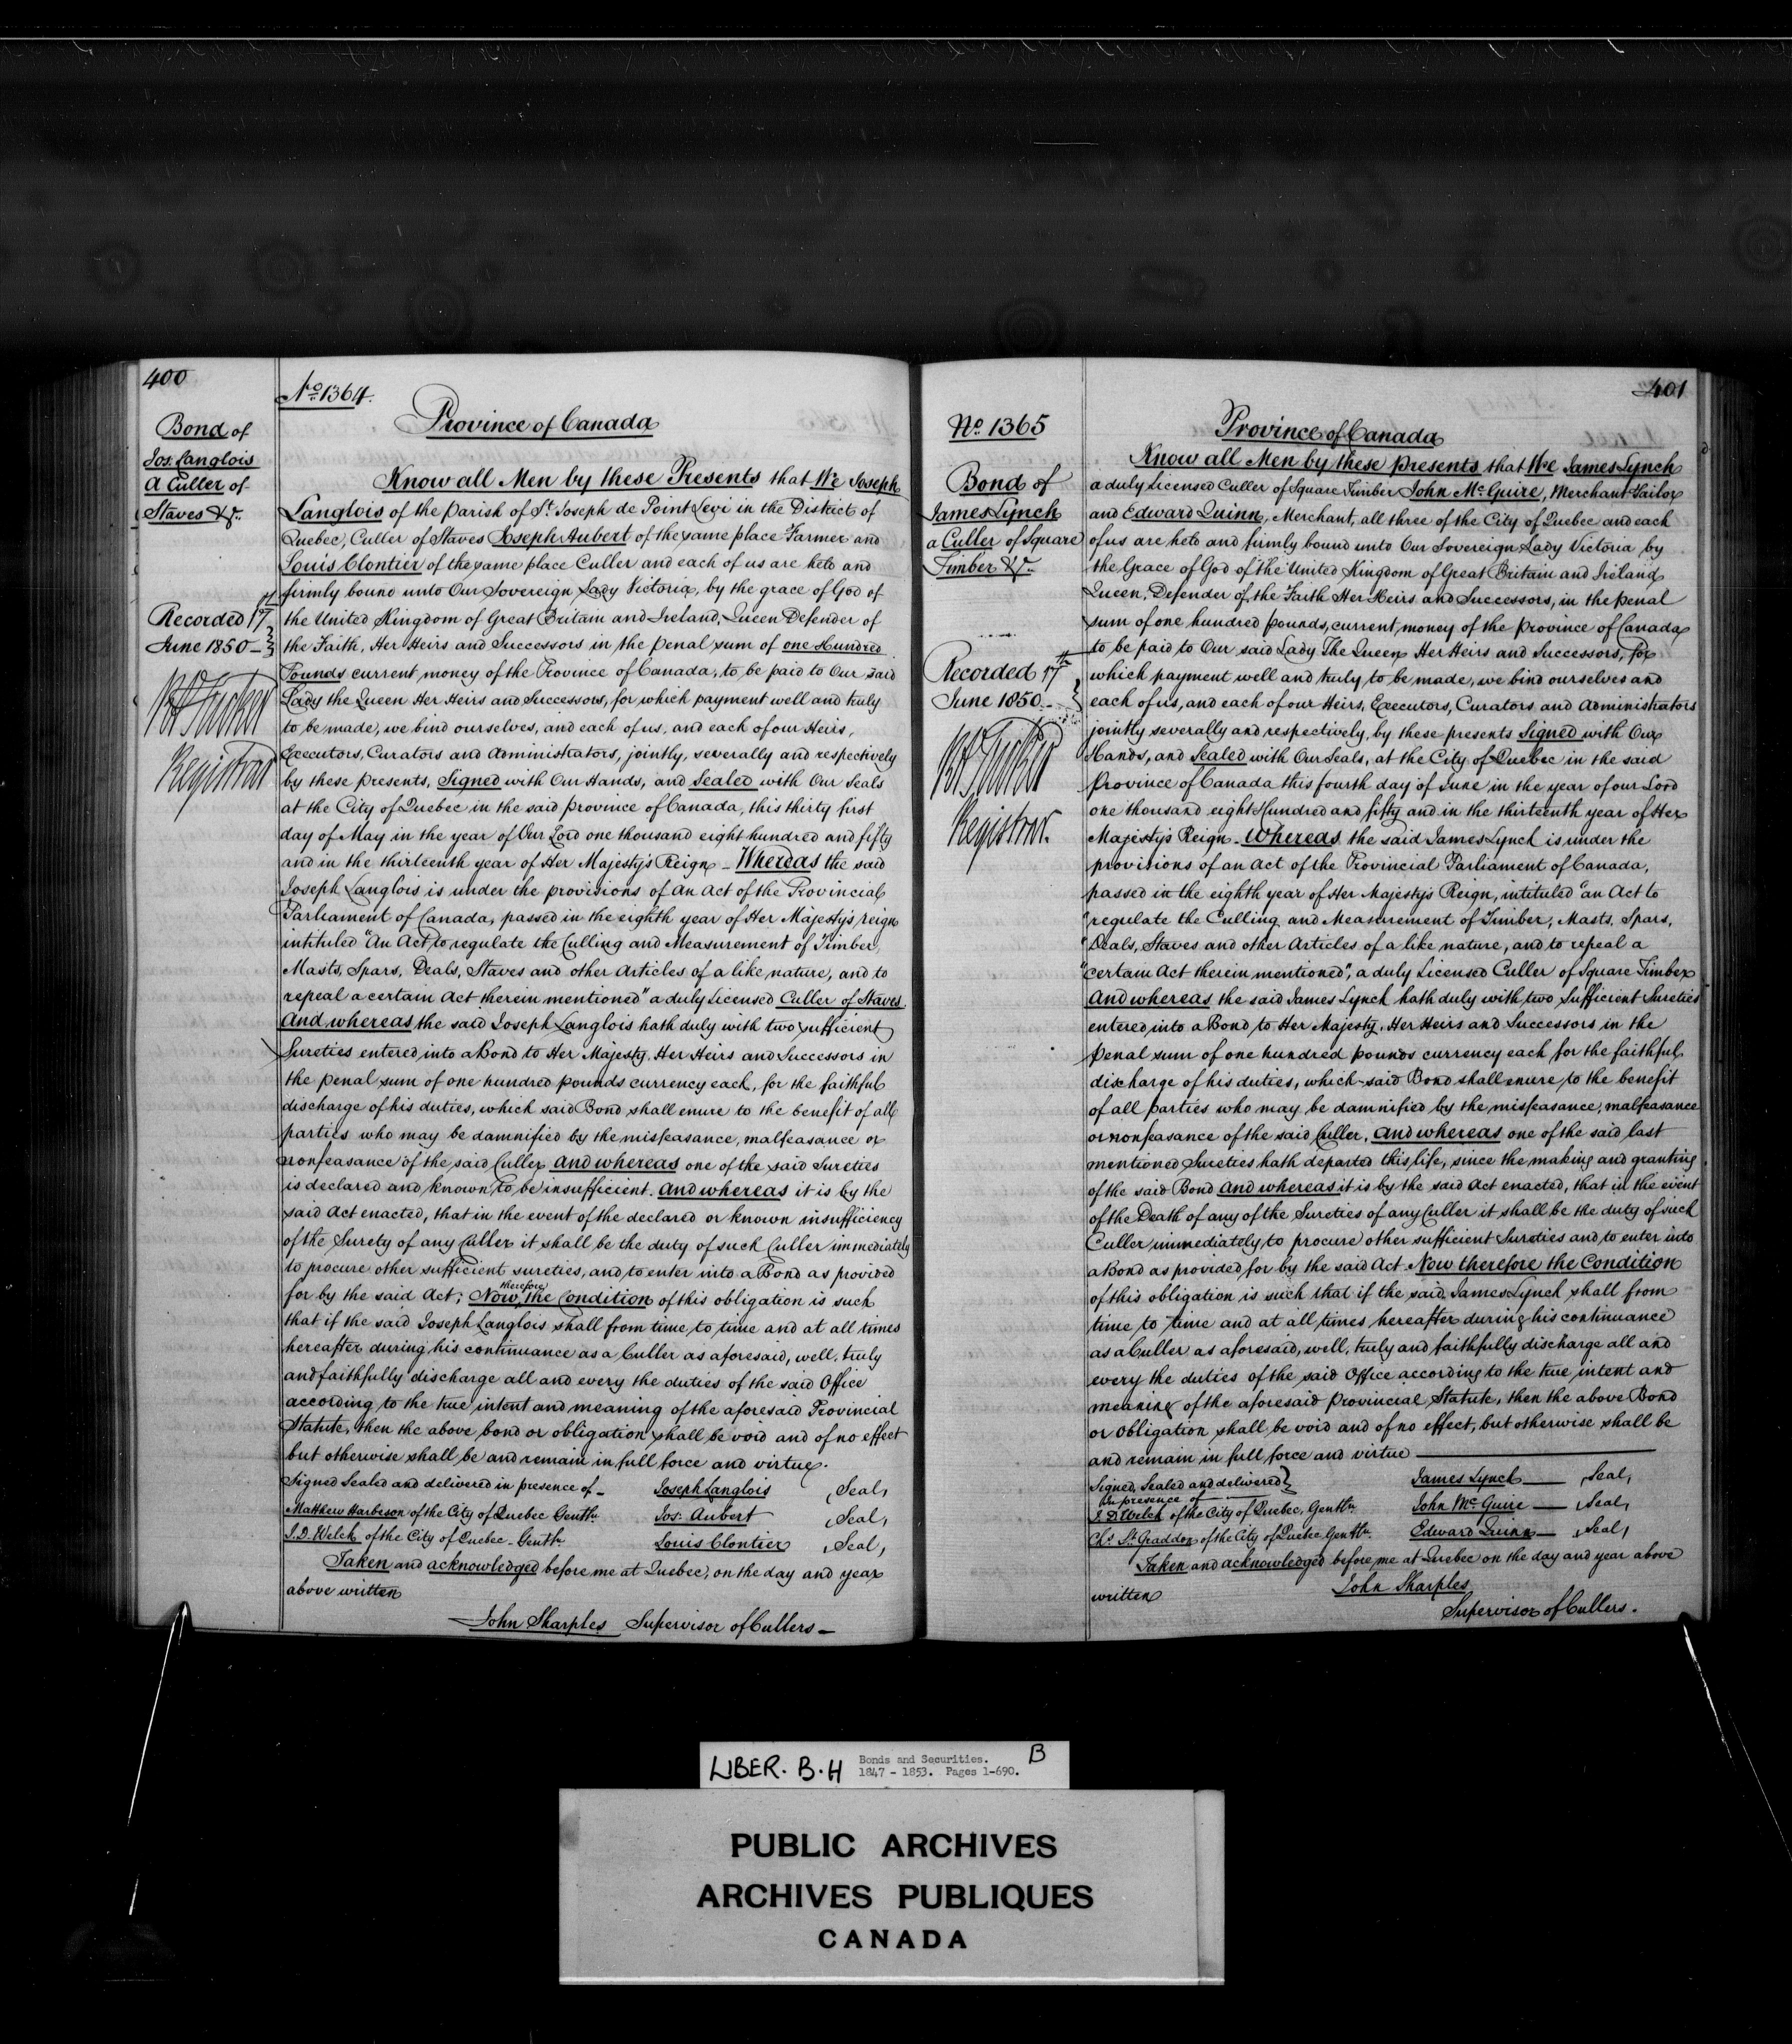 400
No. 1364.
Bond of
Jos: Langlois
A Culler of
Staves &c.
Recorded 17th
June 1850
Registrar
Province of Canada
Know all Men by these Presents that We Joseph
Langlois of the Parish of St. Joseph de Point Levi in the District of
Quebec, Culler of Staves Joseph Aubert of the same place Farmer and
Louis Clontier of the same place Culler and each of us are held and
firmly bound unto Our Sovereign Lady Victoria, by the grace of God of
the United Kingdom of Great Britain and Ireland, Queen Defender of
the Faith, Her Heirs and Successors in the penal sum of one Hundred
Pounds current money of the Province of Canada, to be paid to Our said
Lady the Queen Her Heirs and Successors, for which payment well and truly
to be made, we bind ourselves, and each of us, and each of our Heirs,
Executors, Curators and Administrators, jointly, severally and respectively
by these presents, Signed with Our Hands, and Sealed with Our Seals
at the City of Quebec in the said province of Canada, this thirty first
day of May in the year of Our Lord one thousand eight hundred and fifty
and in the thirteenth year of Her Majesty's Reign – Whereas the said
Joseph Langlois is under the provisions of An Act of the Provincial
Parliament of Canada, passed in the eighth year of Her Majesty's reign
intituled "An Act to regulate the Culling and Measurement of Timber,
Masts, Spars, Deals, Staves and other Articles of a like nature, and to
repeal a certain Act therein mentioned" a duly Licensed Culler of Staves.
And whereas the said Joseph Langlois hath duly with two sufficient
Sureties entered into a Bond to Her Majesty, Her Heirs and Successors in
the penal sum of one hundred pounds currency each, for the faithful
discharge of his duties, which said Bond shall enure to the benefit of all
parties who may be damnified by the misfeasance, malfeasance or
nonfeasance of the said Culler and whereas one of the said Sureties
is declared and known to be insufficient. And whereas it is by the
said Act enacted, that in the event of the declared or known insufficiency
of the Surety of any Culler it shall be the duty of such Culler immediately
to procure other sufficient sureties, and to enter into a Bond as provided
for by the said Act; Now, therefore the Condition of this obligation is such
that if the said Joseph Langlois shall from time to time and at all times
hereafter during his continuance as a Culler as aforesaid, well, truly
and faithfully discharge all and every the duties of the said Office
according to the true intent and meaning of the aforesaid Provincial
Statute, then the above bond or obligation shall be void and of no effect
but otherwise shall be and remain in full force and virtue.
Signed Sealed and delivered in presence of – Joseph Langlois Seal,
Matthew Harbeson of the City of Quebec Gentln Jos: Aubert Seal,
J. D. Welch of the City of Quebec – Gentln Louis Clontier Seal,
Taken and acknowledged before me at Quebec, on the day and year
above written
John Sharples Supervisor of Cullers –
401
No. 1365
Bond of
James Lynch
a Culler of Square
Timber &c.
Recorded 17th
June 1850.
Registrar.
Province of Canada
Know all Men by these presents that We James Lynch
a duly Licensed Culler of Square Timber John McGuire, Merchant Tailor
and Edward Quinn, Merchant, all three of the City of Quebec and each
of us are held and firmly bound unto Our Sovereign Lady Victoria by
the Grace of God of the United Kingdom of Great Britain and Ireland
Queen, Defender of the Faith Her Heirs and Successors, in the penal
sum of one hundred pounds, current money of the province of Canada
to be paid to Our said Lady The Queen Her Heirs and Successors, for
which payment well and truly to be made, we bind ourselves and
each of us, and each of our Heirs, Executors, Curators and Administrators
jointly severally and respectively, by these presents Signed with Our
Hands, and Sealed with Our Seals, at the City of Quebec in the said
province of Canada this fourth day of June in the year of our Lord
one thousand eight Hundred and fifty and in the thirteenth year of Her
Majesty's Reign – Whereas the said James Lynch is under the
provisions of an Act of the Provincial Parliament of Canada,
passed in the eighth year of Her Majesty's Reign, intituled "an Act to
"regulate the Culling and Measurement of Timber, Masts, Spars,
"Deals, Staves and other Articles of a like nature, and to repeal a
"certain Act therein mentioned", a duly Licensed Culler of Square Timber
And whereas the said James Lynch hath duly with two Sufficient Sureties
entered into a Bond to Her Majesty, Her Heirs and Successors in the
penal sum of one hundred pounds currency each for the faithful
discharge of his duties, which said Bond shall enure to the benefit
of all parties who may be damnified by the misfeasance, malfeasance
or nonfeasance of the said Culler, and whereas one of the said last
mentioned Sureties hath departed this life, since the making and granting
of the said Bond and whereas it is by the said Act enacted, that in the event
of the Death of any of the Sureties of any Culler it shall be the duty of such
Culler immediately to procure other sufficient Sureties and to enter into
a Bond as provided for by the said Act Now therefore the Condition
of this obligation is such that if the said James Lynch shall from
time to time and at all times, hereafter during his continuance
as a Culler as aforesaid, well, truly and faithfully discharge all and
every the duties of the said Office according to the true intent and
meaning of the aforesaid provincial Statute, then the above Bond
or obligation shall be void and of no effect, but otherwise shall be
and remain in full force and virtue
Signed, Sealed and delivered James Lynch – Seal,
In presence of
J. D. Welch of the City of Quebec, Gentln John McGuire – Seal,
Chs. St. Graddon of the City of Quebec Gentln Edward Quinn – Seal,
Taken and acknowledged before me at Quebec on the day and year above
written John Sharples
Supervisor of Cullers.
LIBER. B.H Bonds and Securities. B
1847 - 1853. Pages 1-690.
PUBLIC ARCHIVES
ARCHIVES PUBLIQUES
CANADA